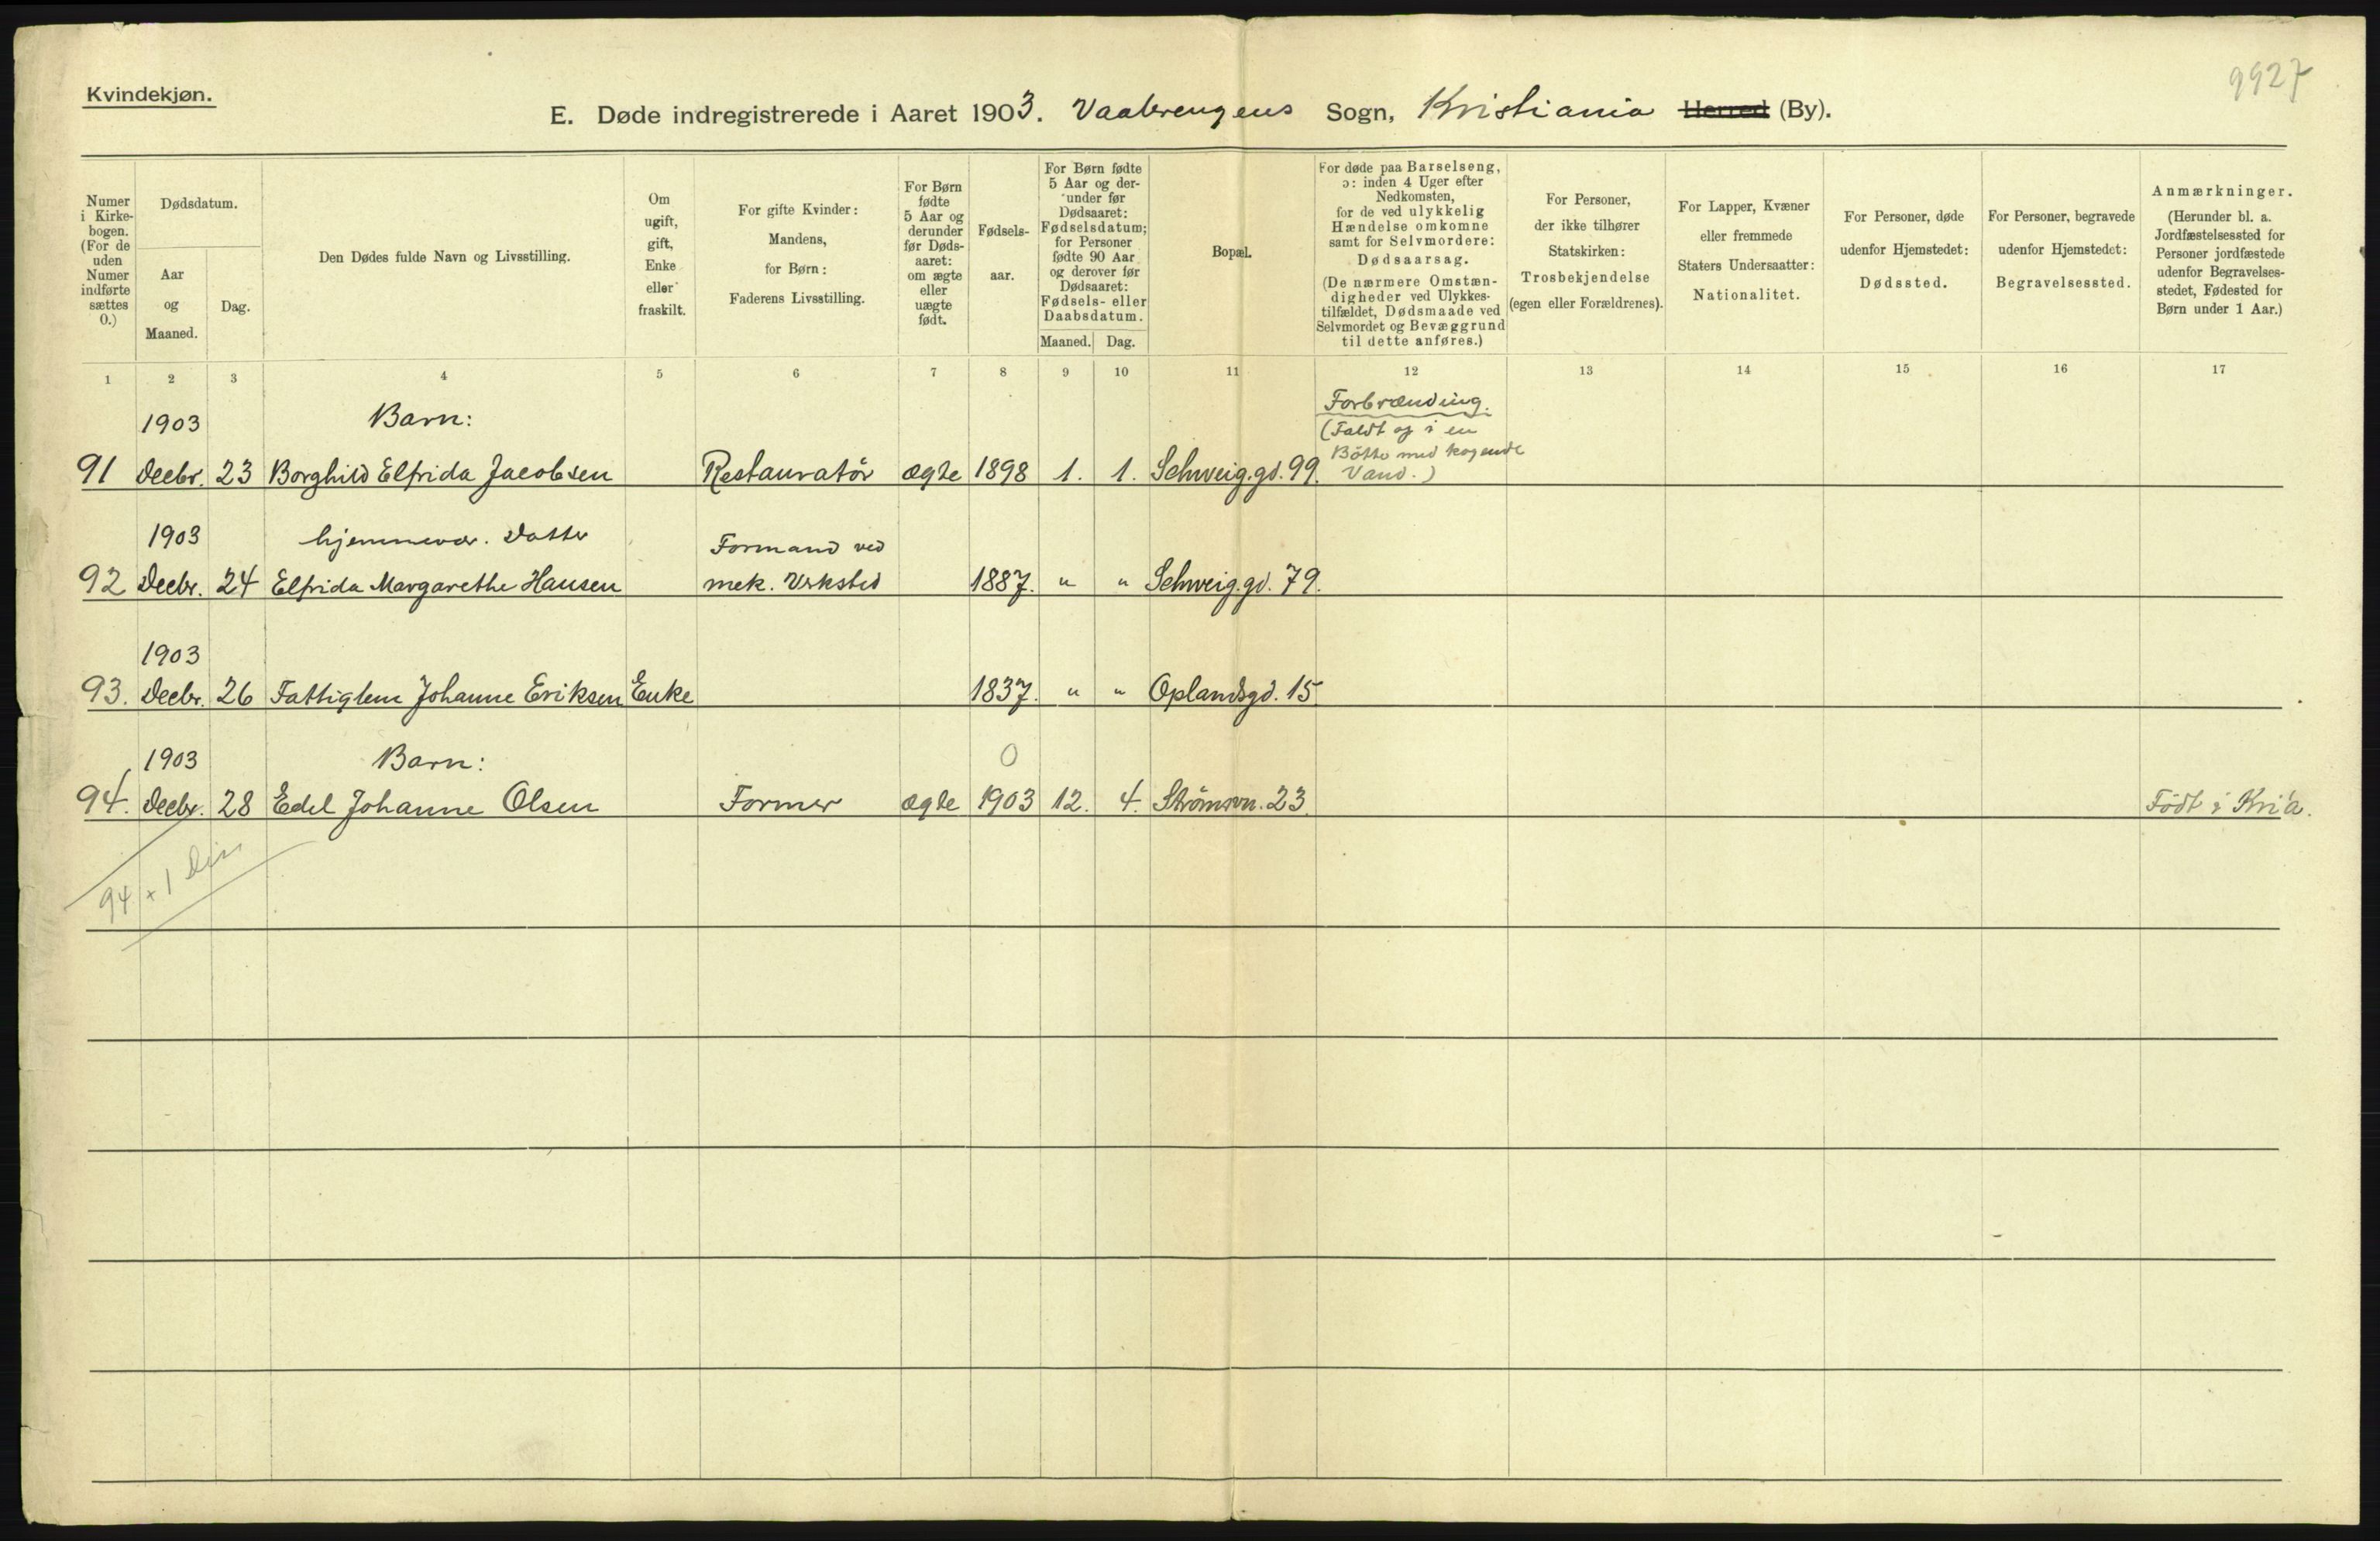 9927
Kvindekjøn.
E. Døde indregistrerede i Aaret 1903. Vaalerengens Sogn, Kristiania Herred (By).
Numer
i Kirke-
bogen.
(For de
uden
Numer
indførte
sættes
0.)
Dødsdatum.
Aar
og
Maaned.
Dag.
Den Dødes fulde Navn og Livsstilling.
Om
ugift,
gift,
Enke
eller
fraskilt.
For gifte Kvinder:
Mandens,
for Børn:
Faderens Livsstilling.
For Børn
fødte
5 Aar og
derunder
før Døds-
aaret:
om ægte
eller
uægte
født.
Fødsels-
aar.
For Børn fødte
5 Aar og der-
under før
Dødsaaret:
Fødselsdatum;
for Personer
fødte 90 Aar
og derover før
Dødsaaret:
Fødsels- eller
Daabsdatum.
Maaned. Dag.
Bopæl.
For døde paa Barselseng,
ɔ: inden 4 Uger efter
Nedkomsten,
for de ved ulykkelig
Hændelse omkomne
samt for Selvmordere:
Dødsaarsag.
(De nærmere Omstæn-
digheder ved Ulykkes-
tilfældet, Dødsmaade ved
Selvmordet og Bevæggrund
til dette anføres.)
For Personer,
der ikke tilhører
Statskirken:
Trosbekjendelse
(egen eller Forældrenes).
For Lapper, Kvæner
eller fremmede
Staters Undersaatter:
Nationalitet.
For Personer, døde
udenfor Hjemstedet:
Dødssted.
For Personer, begravede
udenfor Hjemstedet:
Begravelsessted.
Anmærkninger.
(Herunder bl. a.
Jordfæstelsessted for
Personer jordfæstede
udenfor Begravelses-
stedet, Fødested for
Børn under 1 Aar.)
1 2 3 4 5 6 7 8 9 10 11 12 13 14 15 16 17
1903 Barn: Forbrænding.
(Faldt og i en
Bötte med kogende
91 Decbr. 23 Borghild Elfrida Jacobsen Restauratör ægte 1898 1. 1. Schweig.gd. 99. Vand.)
1903 hjemmevær. Datter Formand ved
92 Decbr. 24 Elfrida Margarethe Hansen mek. Verksted 1887. " " Schweig.gd. 79.
1903
93. Decbr. 26 Fattiglem Johanne Eriksen Enke 1837. " " Oplandsgd. 15.
1903 Barn: 0
94. Decbr. 28 Edel Johanne Olsen Former ægte 1903 12. 4. Strömsvn. 23. Födt i Kri'a.
94 + 1